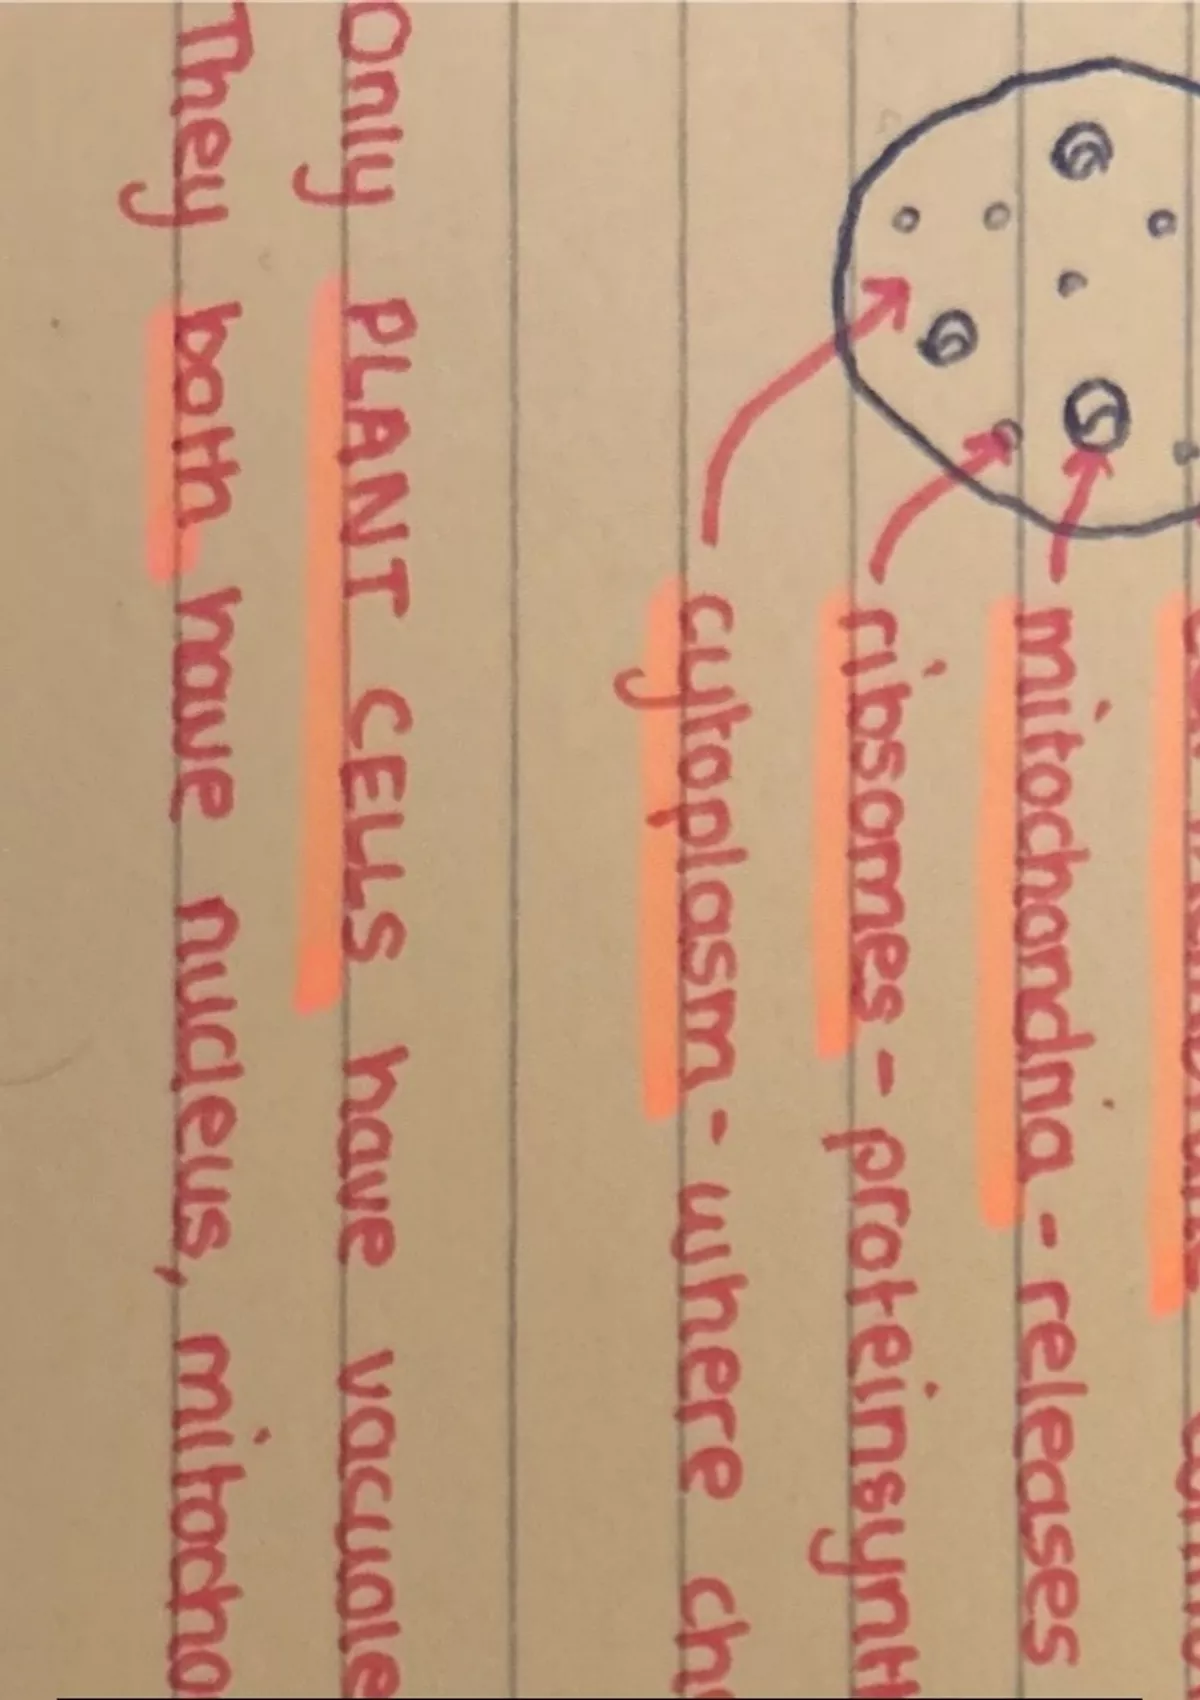 mitochondria - releases
ribsomes - proteinsynt
cytoplasm - where
Only PLANT CELLS have vacuole
They both have nucleus, mitocho